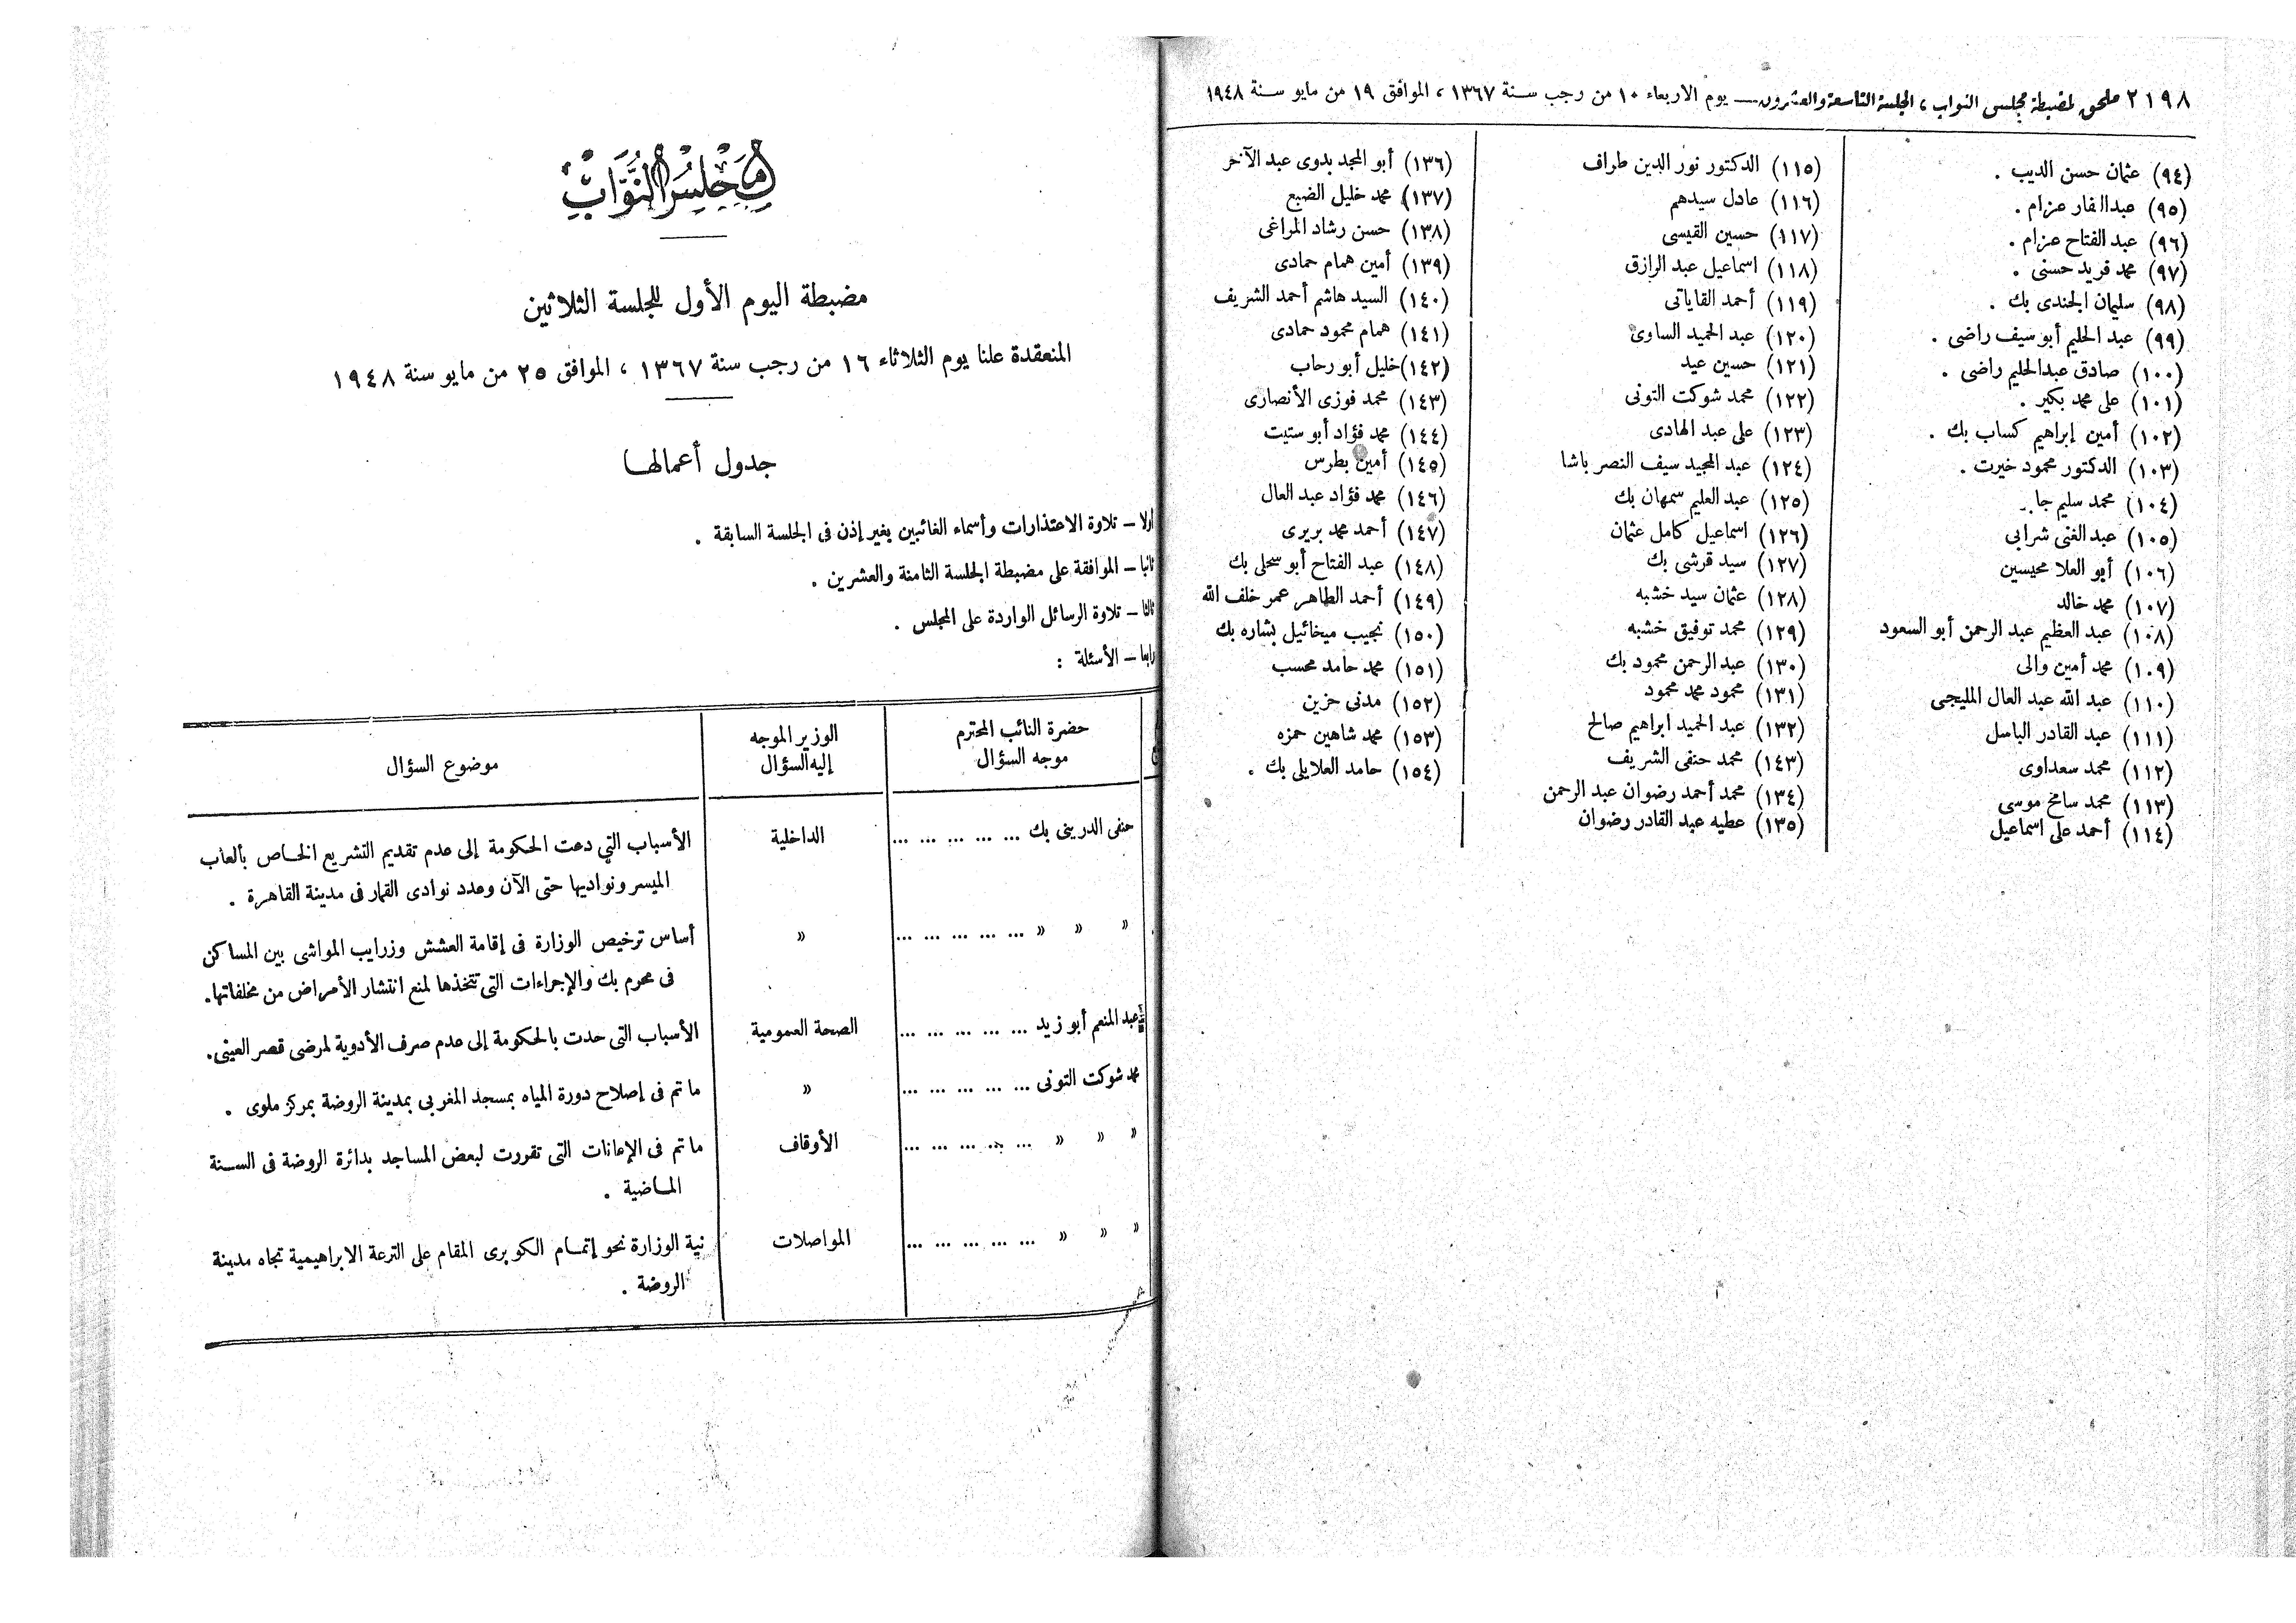 ٢١٩٨ ملحق لمضبطة مجلس النواب ، الجلسة التاسعة والعشرون — يوم الاربعاء ١٠ من رجب سنة ١٣٦٧ ، الموافق ١٩ من مايو سنة ١٩٤٨
(٩٤) عثمان حسن الديب .
(٩٥) عبد الغفار عزام .
(٩٦) عبد الفتاح عزام .
(٩٧) محمد فريد حسنى .
(٩٨) سليمان الجندى بك .
(٩٩) عبد الحليم أبو سيف راضى .
(١٠٠) صادق عبد الحليم راضى .
(١٠١) على محمد بكير .
(١٠٢) أمين إبراهيم كساب بك .
(١٠٣) الدكتور محمود خيرت .
(١٠٤) محمد سليم جا..
(١٠٥) عبد الغنى شرابى
(١٠٦) أبو العلا محيسين
(١٠٧) محمد خالد
(١٠٨) عبد العظيم عبد الرحمن أبو السعود
(١٠٩) محمد أمين والى
(١١٠) عبد الله عبد العال المليجى
(١١١) عبد القادر الباسل
(١١٢) محمد سعداوى
(١١٣) محمد سامح موسى
(١١٤) أحمد على اسماعيل
(١١٥) الدكتور نور الدين طراف
(١١٦) عادل سيدهم
(١١٧) حسين القيسى
(١١٨) اسماعيل عبد الرازق
(١١٩) أحمد القاياتى
(١٢٠) عبد الحميد الساوى
(١٢١) حسين عيد
(١٢٢) محمد شوكت التونى
(١٢٣) على عبد الهادى
(١٢٤) عبد المجيد سيف النصر باشا
(١٢٥) عبد العليم سمهان بك
(١٢٦) اسماعيل كامل عثمان
(١٢٧) سيد قرشى بك
(١٢٨) عثمان سيد خشبه
(١٢٩) محمد توفيق خشبه
(١٣٠) عبد الرحمن محمود بك
(١٣١) محمود محمد محمود
(١٣٢) عبد الحميد ابراهيم صالح
(١٤٣) محمد حنفى الشريف
(١٣٤) محمد أحمد رضوان عبد الرحمن
(١٣٥) عطيه عبد القادر رضوان
(١٣٦) أبو المجد بدوى عبد الآخر
(١٣٧) محمد خليل الضبع
(١٣٨) حسن رشاد المراغى
(١٣٩) أمين همام حمادى
(١٤٠) السيد هاشم أحمد الشريف
(١٤١) همام محمود حمادى
(١٤٢) خليل أبو رحاب
(١٤٣) محمد فوزى الأنصارى
(١٤٤) محمد فؤاد أبو ستيت
(١٤٥) أمين بطرس
(١٤٦) محمد فؤاد عبد العال
(١٤٧) أحمد محمد بريرى
(١٤٨) عبد الفتاح أبو سحلى بك
(١٤٩) أحمد الطاهر عمر خلف الله
(١٥٠) نجيب ميخائيل بشاره بك
(١٥١) محمد حامد محسب
(١٥٢) مدنى حزين
(١٥٣) محمد شاهين حمزه
(١٥٤) حامد العلايلى بك .
مَجْلِسُ النُّوَّابْ
مضبطة اليوم الأول للجلسة الثلاثين
المنعقدة علنا يوم الثلاثاء ١٦ من رجب سنة ١٣٦٧ ، الموافق ٢٥ من مايو سنة ١٩٤٨
جدول أعمالها
أولا — تلاوة الاعتذارات وأسماء الغائبين بغير إذن فى الجلسة السابقة .
ثانيا — الموافقة على مضبطة الجلسة الثامنة والعشرين .
ثالثا — تلاوة الرسائل الواردة على المجلس .
رابعا — الأسئلة :
حضرة النائب المحترم
موجه السؤال
الوزير الموجه
إليه السؤال
موضوع السؤال
حنفى الدرينى بك ... ... ... ... ...
الداخلية
الأسباب التي دعت الحكومة إلى عدم تقديم التشريع الخاص بألعاب
الميسر ونواديها حتى الآن وعدد نوادى القمار فى مدينة القاهرة .
» » » ... ... ... ... ...
»
أساس ترخيص الوزارة فى إقامة العشش وزرايب المواشى بين المساكن
فى محرم بك والإجراءات التى تتخذها لمنع انتشار الأمراض من مخلفاتها.
عبد المنعم أبو زيد ... ... ... ... ...
الصحة العمومية
الأسباب التى حدت بالحكومة إلى عدم صرف الأدوية لمرضى قصر العينى.
محمد شوكت التونى ... ... ... ... ...
»
ما تم فى إصلاح دورة المياه بمسجد المغربى بمدينة الروضة بمركز ملوى .
» » » ... ... ... ... ...
الأوقاف
ما تم فى الإعانات التى تقررت لبعض المساجد بدائرة الروضة فى السنة
الماضية .
» » » ... ... ... ... ...
المواصلات
نية الوزارة نحو إتمام الكوبرى المقام على الترعة الابراهيمية تجاه مدينة
الروضة .